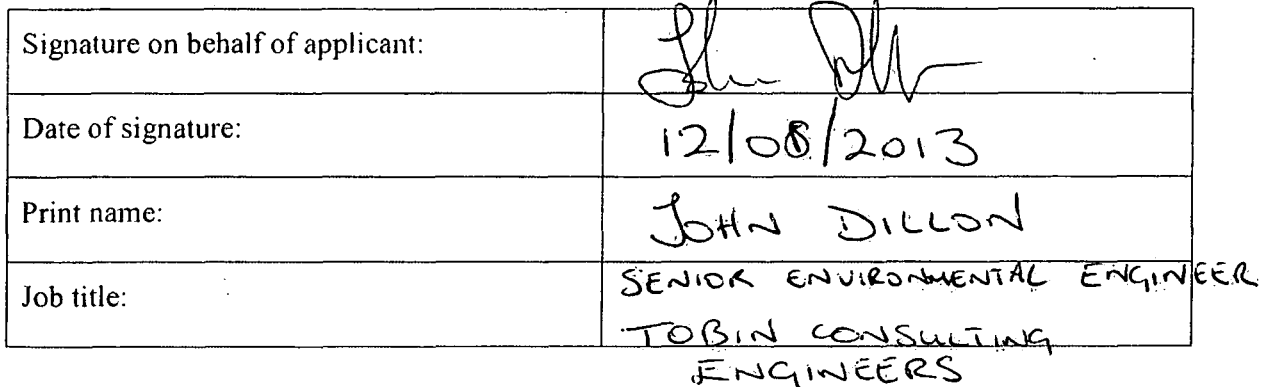 Signature on behalf of applicant: John Dillon
Date of signature: 12/08/2013
Print name: JOHN DILLON
Job title: SENIOR ENVIRONMENTAL ENGINEER
TOBIN CONSULTING
ENGINEERS